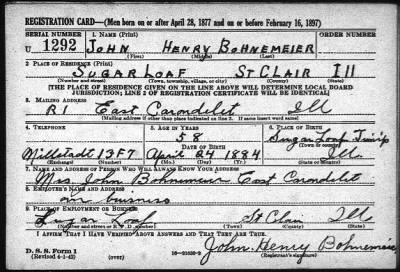 REGISTRATION CARD—(Men born on or after April 28, 1877 and on or before February 16, 1897)
SERIAL NUMBER 1. NAME (Print) ORDER NUMBER
U 1292 JOHN HENRY BOHNEMEIER
(First) (Middle) (Last)
2. PLACE OF RESIDENCE (Print)
SUGAR LOAF ST CLAIR Ill
(Number and street) (Town, township, village, or city) (County) (State)
[THE PLACE OF RESIDENCE GIVEN ON THE LINE ABOVE WILL DETERMINE LOCAL BOARD
JURISDICTION; LINE 2 OF REGISTRATION CERTIFICATE WILL BE IDENTICAL]
3. MAILING ADDRESS
R1 East Carondelet Ill
[Mailing address if other than place indicated on line 2. If same insert word same]
4. TELEPHONE 5. AGE IN YEARS 6. PLACE OF BIRTH
58 Sugar Loaf Twp
DATE OF BIRTH (Town or county)
Millstadt 13F7 April 24 1884 Ill.
(Exchange) (Number) (Mo.) (Day) (Yr.) (State or country)
7. NAME AND ADDRESS OF PERSON WHO WILL ALWAYS KNOW YOUR ADDRESS
Mrs John Bohnemeier East Carondelet
8. EMPLOYER'S NAME AND ADDRESS
own business
9. PLACE OF EMPLOYMENT OR BUSINESS
Sugar Loaf St Clair Ill
(Number and street or R. F. D. number) (Town) (County) (State)
I AFFIRM THAT I HAVE VERIFIED ABOVE ANSWERS AND THAT THEY ARE TRUE.
D. S. S. Form 1
(Revised 4-1-42) (over)
John Henry Bohnemeier
(Registrant's signature)